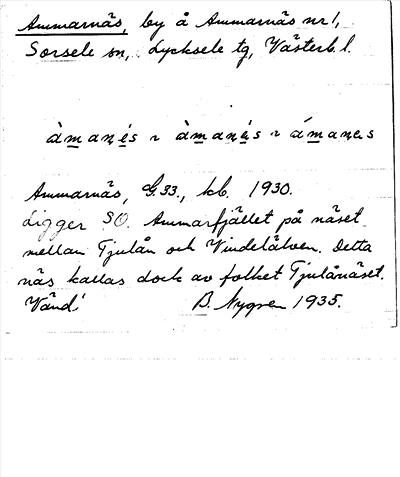 Ammarnäs, by å Ammarnäs nr 1,
Sorsele sn, Lycksele tg, Västerb. l.
àmanés ~ àmanǽs ~ ámanes
Ammarnäs, G. 33., kb. 1930.
Ligger SO. Ammarfjället på näset
mellan Tjulån och Vindelälven. Detta
näs kallas dock av folket Tjulånäset.
Vänd! B. Nygren 1935.